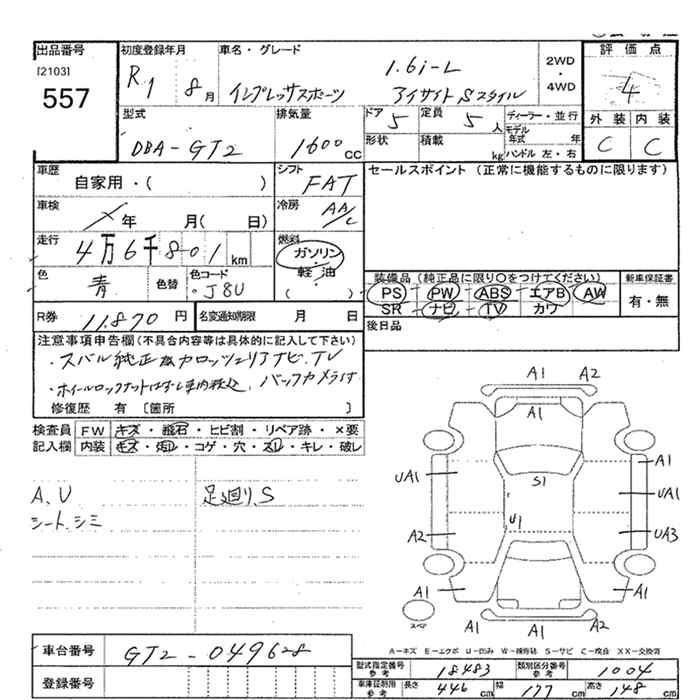 出品番号
[2103]
557
初度登録年月
R1 8月
車名・グレード
1.6i-L
インプレッサスポーツ アイサイトSスタイル
2WD
・
4WD
評価点
4
外装 内装
C C
型式
DBA-GT2
排気量
1600cc
ドア 5
定員 5人
形状
積載 kg
ディーラー・並行
モデル年式 年
ハンドル 左・右
車歴
自家用・( )
シフト
FAT
車検
年 月( 日)
冷房
AA/C
走行
4万6千801km
燃料
ガソリン
・
軽油
( )
色
青
色替
色コード
・J8U
R券
11,870円
名変通知期限 月 日
セールスポイント (正常に機能するものに限ります)
装備品 (純正品に限り〇をつけてください)
PS PW ABS エアB AW
SR ナビ TV カワ
新車保証書
有・無
後日品
注意事項申告欄(不具合内容等は具体的に記入して下さい)
・スバル純正 カロッツェリアナビ.TV
・ホイールロックナットはずし車内積込. バックカメラ付
修復歴 有 [箇所 ]
検査員 FW キズ・飛石・ヒビ割・リペア跡・×要
記入欄 内装 キズ・汚レ・コゲ・穴・スレ・キレ・破レ
A、U
シート、シミ
足廻り、S
A1 A2
A1
A1
UA1
S1
UA1
U1
A2
UA3
A1
A1
A1 A2
スペア
A-キズ E-エクボ U-凹み W-補修跡 S-サビ C-腐食 XX-交換済
車台番号
GT2-049628
登録番号
型式指定番号参考 18483
類別区分番号参考 1004
車庫証明用参考 長さ 446cm 幅 177cm 高さ 148cm